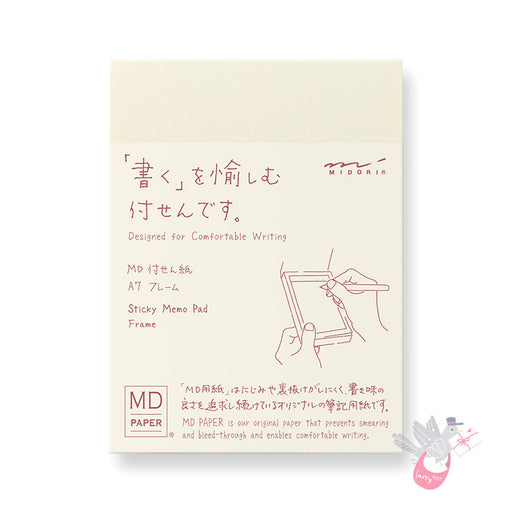 「書く」を愉しむ
付せんです。
MIDORI®
Designed for Comfortable Writing
MD 付せん紙
A7 フレーム
Sticky Memo Pad
Frame
MD
PAPER®
「MD用紙」はにじみや裏抜けがしにくく、書き味の
良さを追求し続けているオリジナルの筆記用紙です。
MD PAPER is our original paper that prevents smearing
and bleed-through and enables comfortable writing.